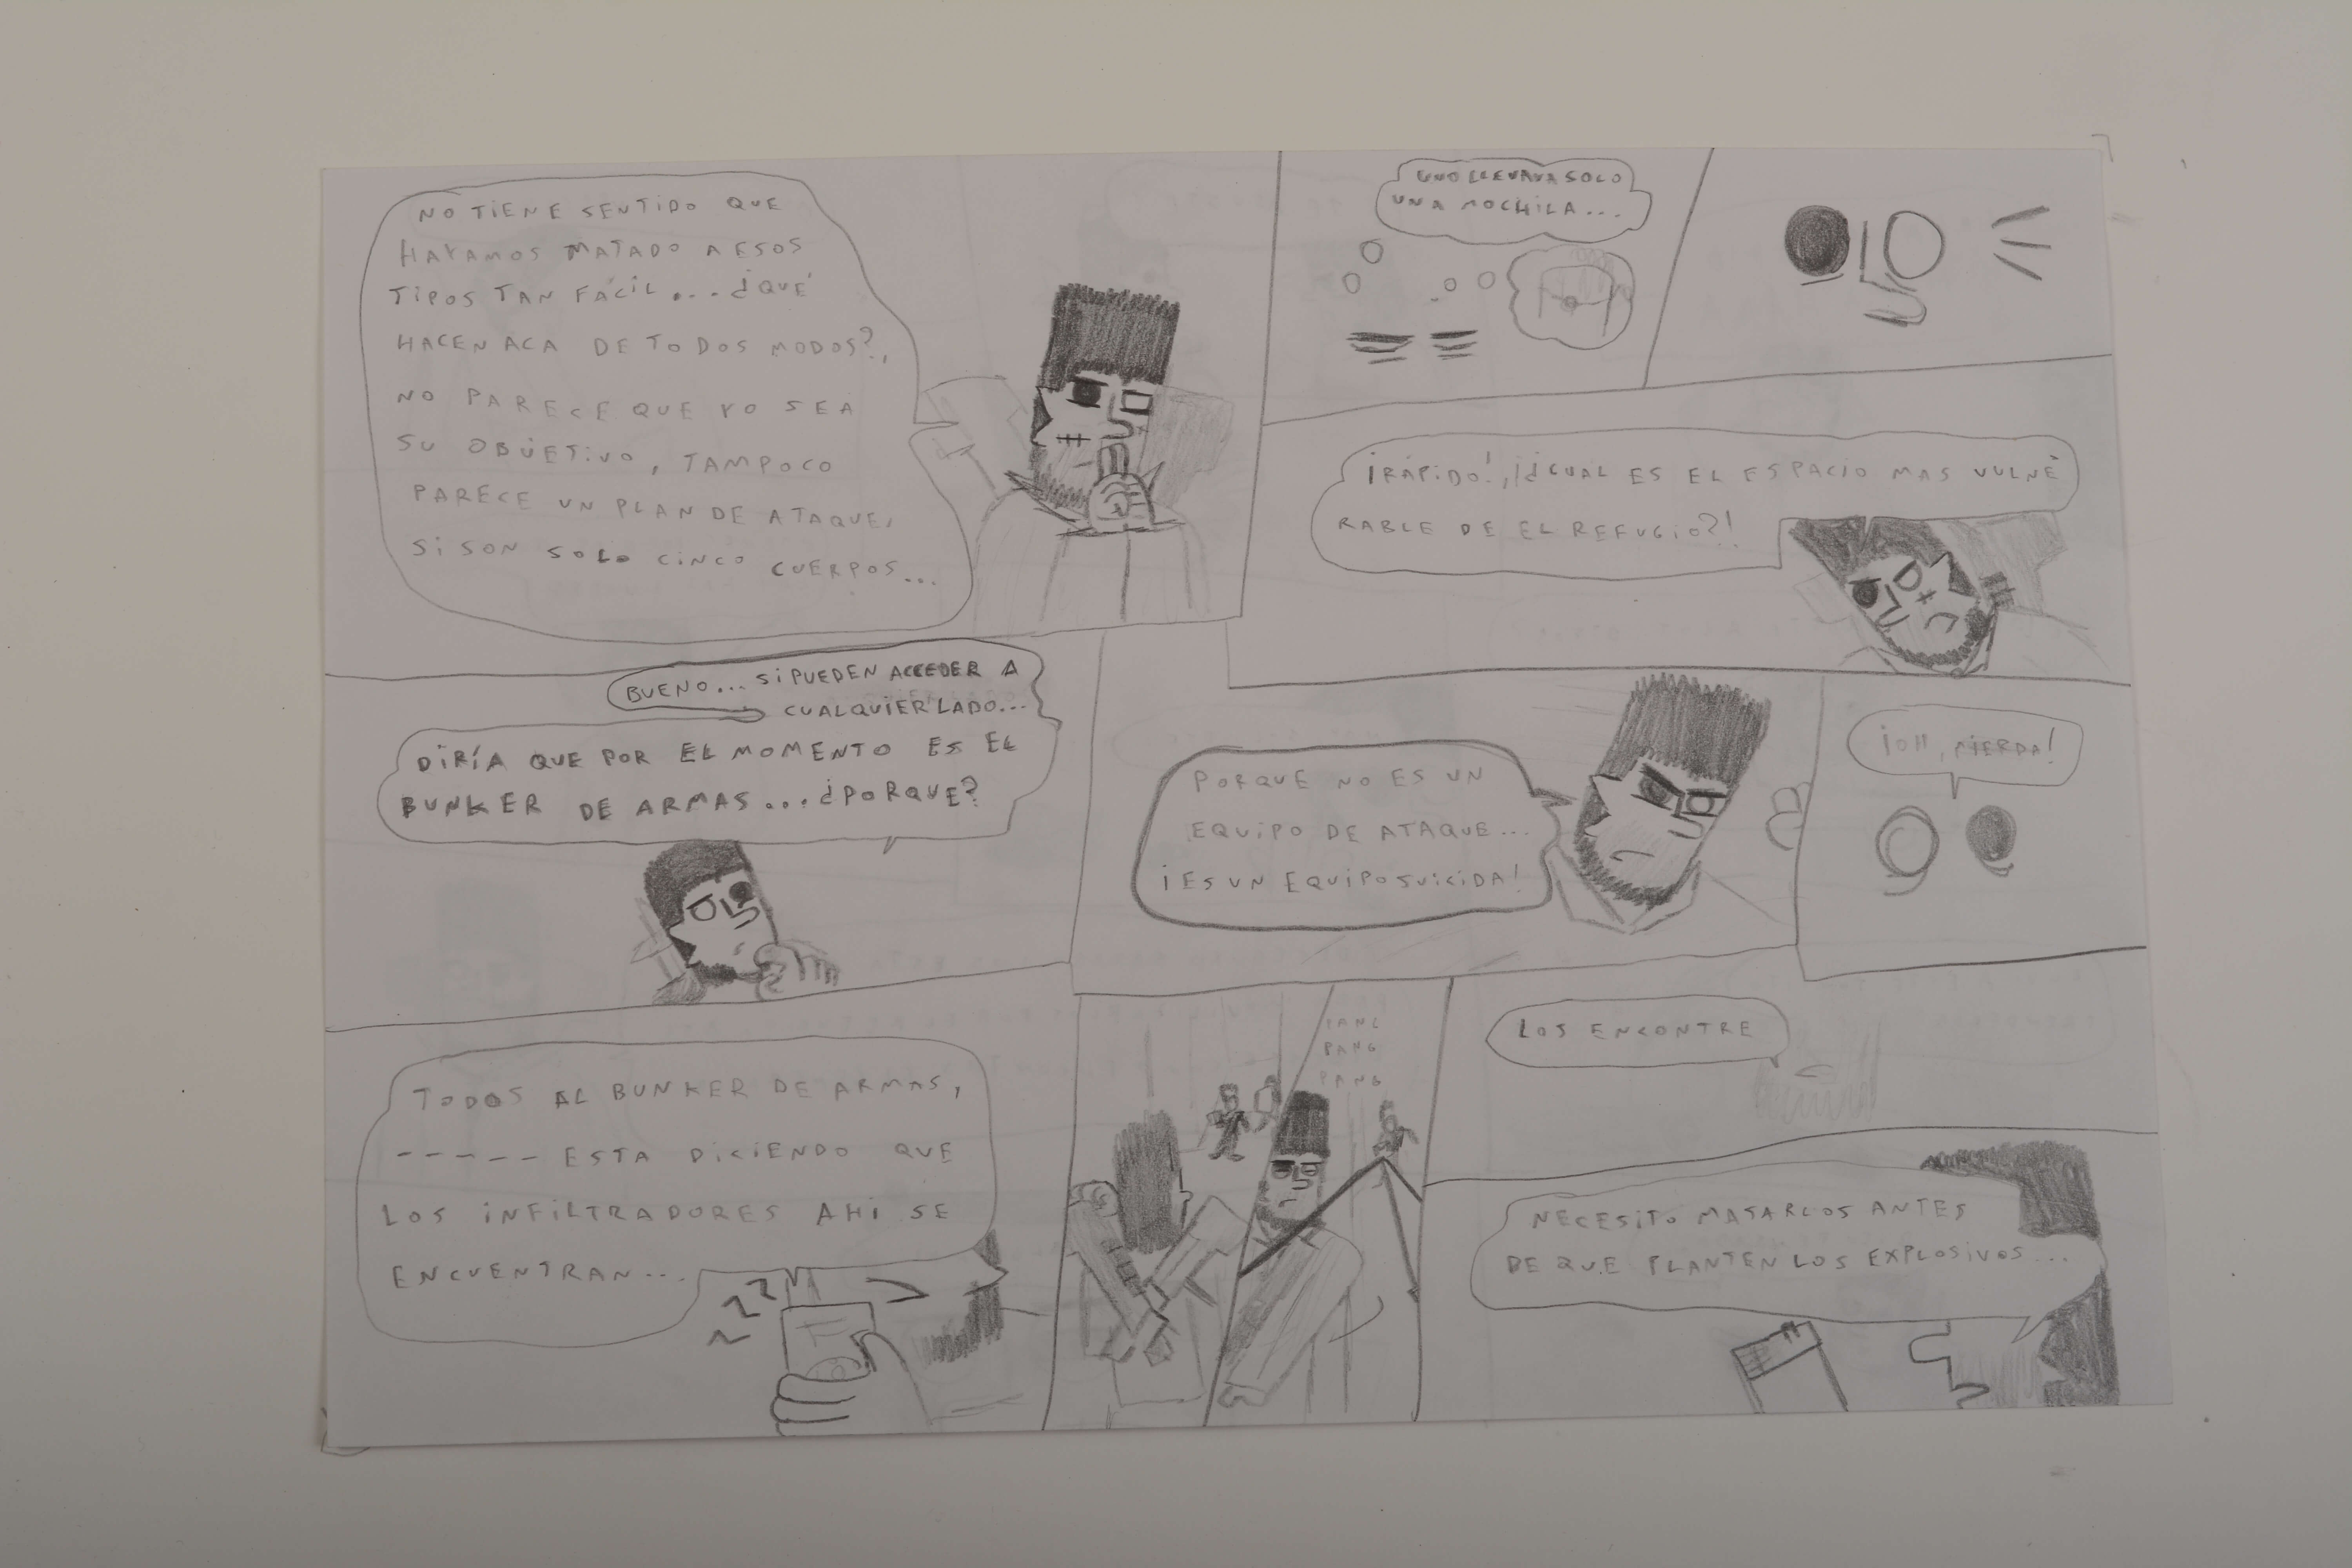 NO TIENE SENTIDO QUE
HAYAMOS MATADO A ESOS
TIPOS TAN FÁCIL... ¿QUÉ
HACEN ACA DE TODOS MODOS?,
NO PARECE QUE YO SEA
SU OBJETIVO, TAMPOCO
PARECE UN PLAN DE ATAQUE,
SI SON SOLO CINCO CUERPOS...
UNO LLEVAVA SOLO
UNA MOCHILA...
¡RÁPIDO!, ¡¿CUAL ES EL ESPACIO MAS VULNE
RABLE DE EL REFUGIO?!
BUENO... SI PUEDEN ACCEDER A
CUALQUIER LADO...
DIRÍA QUE POR EL MOMENTO ES EL
BUNKER DE ARMAS... ¿PORQUE?
PORQUE NO ES UN
EQUIPO DE ATAQUE...
¡ES UN EQUIPO SUICIDA!
¡OH, MIERDA!
TODOS AL BUNKER DE ARMAS,
------ ESTA DICIENDO QUE
LOS INFILTRADORES AHI SE
ENCUENTRAN...
PANG
PANG
PANG
LOS ENCONTRE
NECESITO MATARLOS ANTES
DE QUE PLANTEN LOS EXPLOSIVOS...